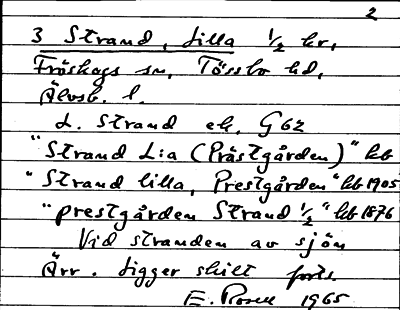 2
3 Strand, Lilla 1/2 kr,
Fröskogs sn, Tössbo hd,
Älvsb. l.
L. Strand ek, G62
"Strand L:a (Prästgården)" kb
"Strand lilla, Prestgården" kb 1905
"prestgården Strand 1/2" kb 1876
Vid stranden av sjön
Ärr. Ligger skilt forts
E. Rosell 1965